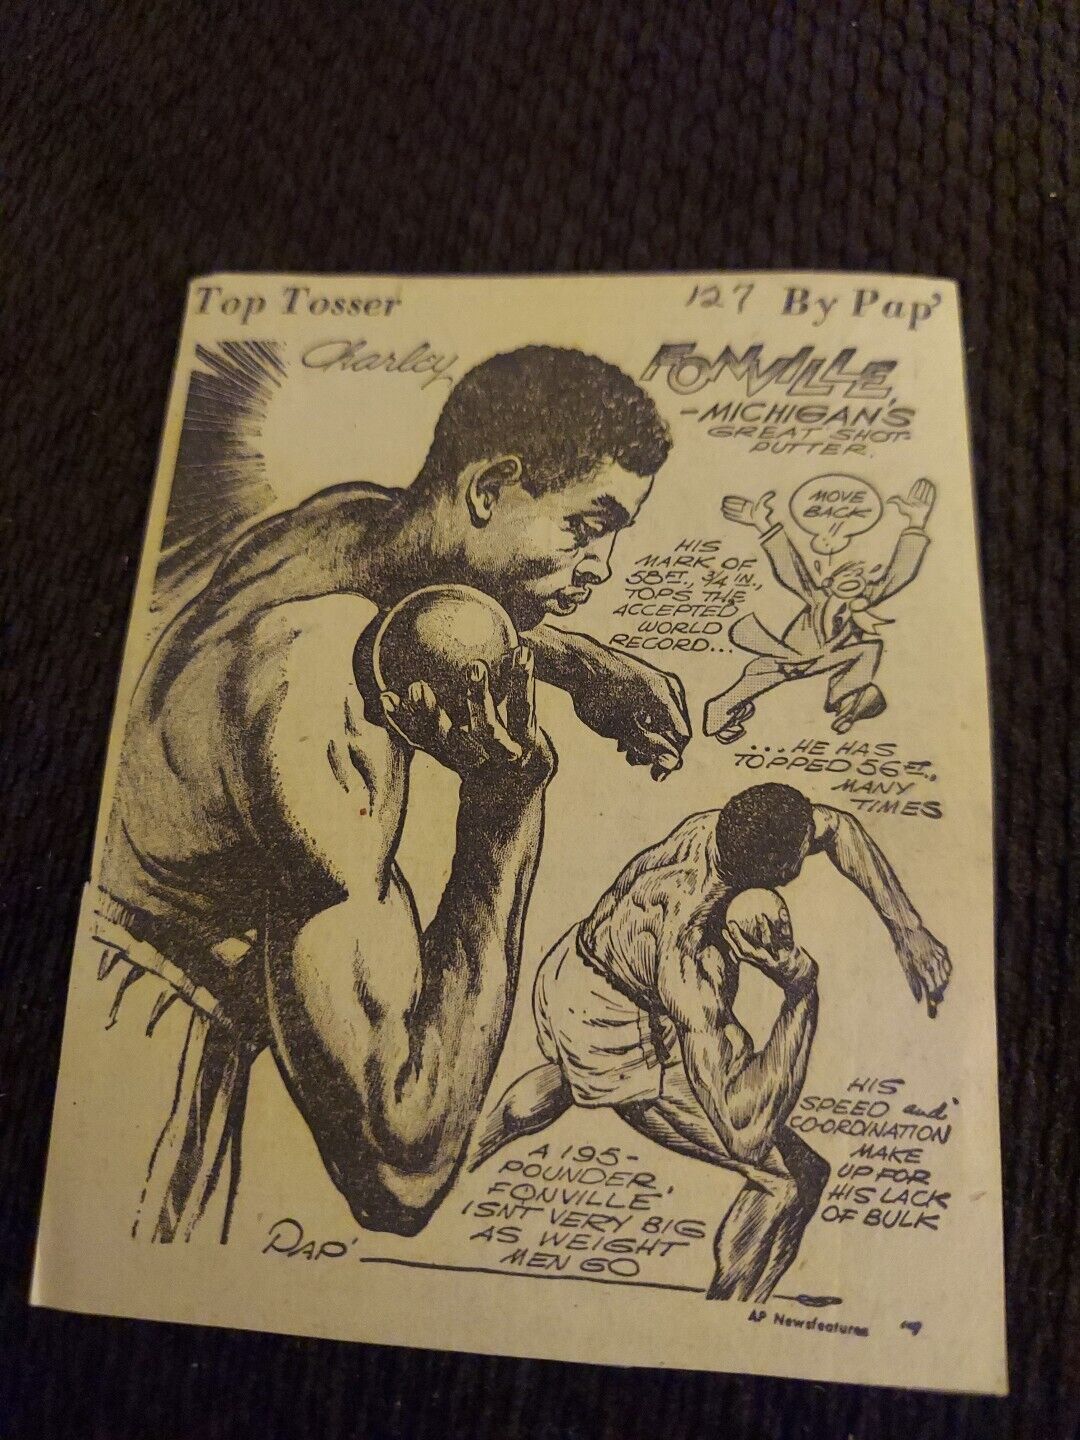 Top Tosser 127 By Pap'
Charley FONVILLE,
-MICHIGAN'S
GREAT SHOT-
PUTTER.
MOVE
BACK
!!
HIS
MARK OF
58 FT., 3/4 IN.,
TOPS THE
ACCEPTED
WORLD
RECORD...
...HE HAS
TOPPED 56 FT.,
MANY
TIMES
HIS
SPEED and
CO-ORDINATION
MAKE
UP FOR
HIS LACK
OF BULK
A 195-
POUNDER,
FONVILLE
ISN'T VERY BIG
AS WEIGHT
MEN GO
PAP'
AP Newsfeatures